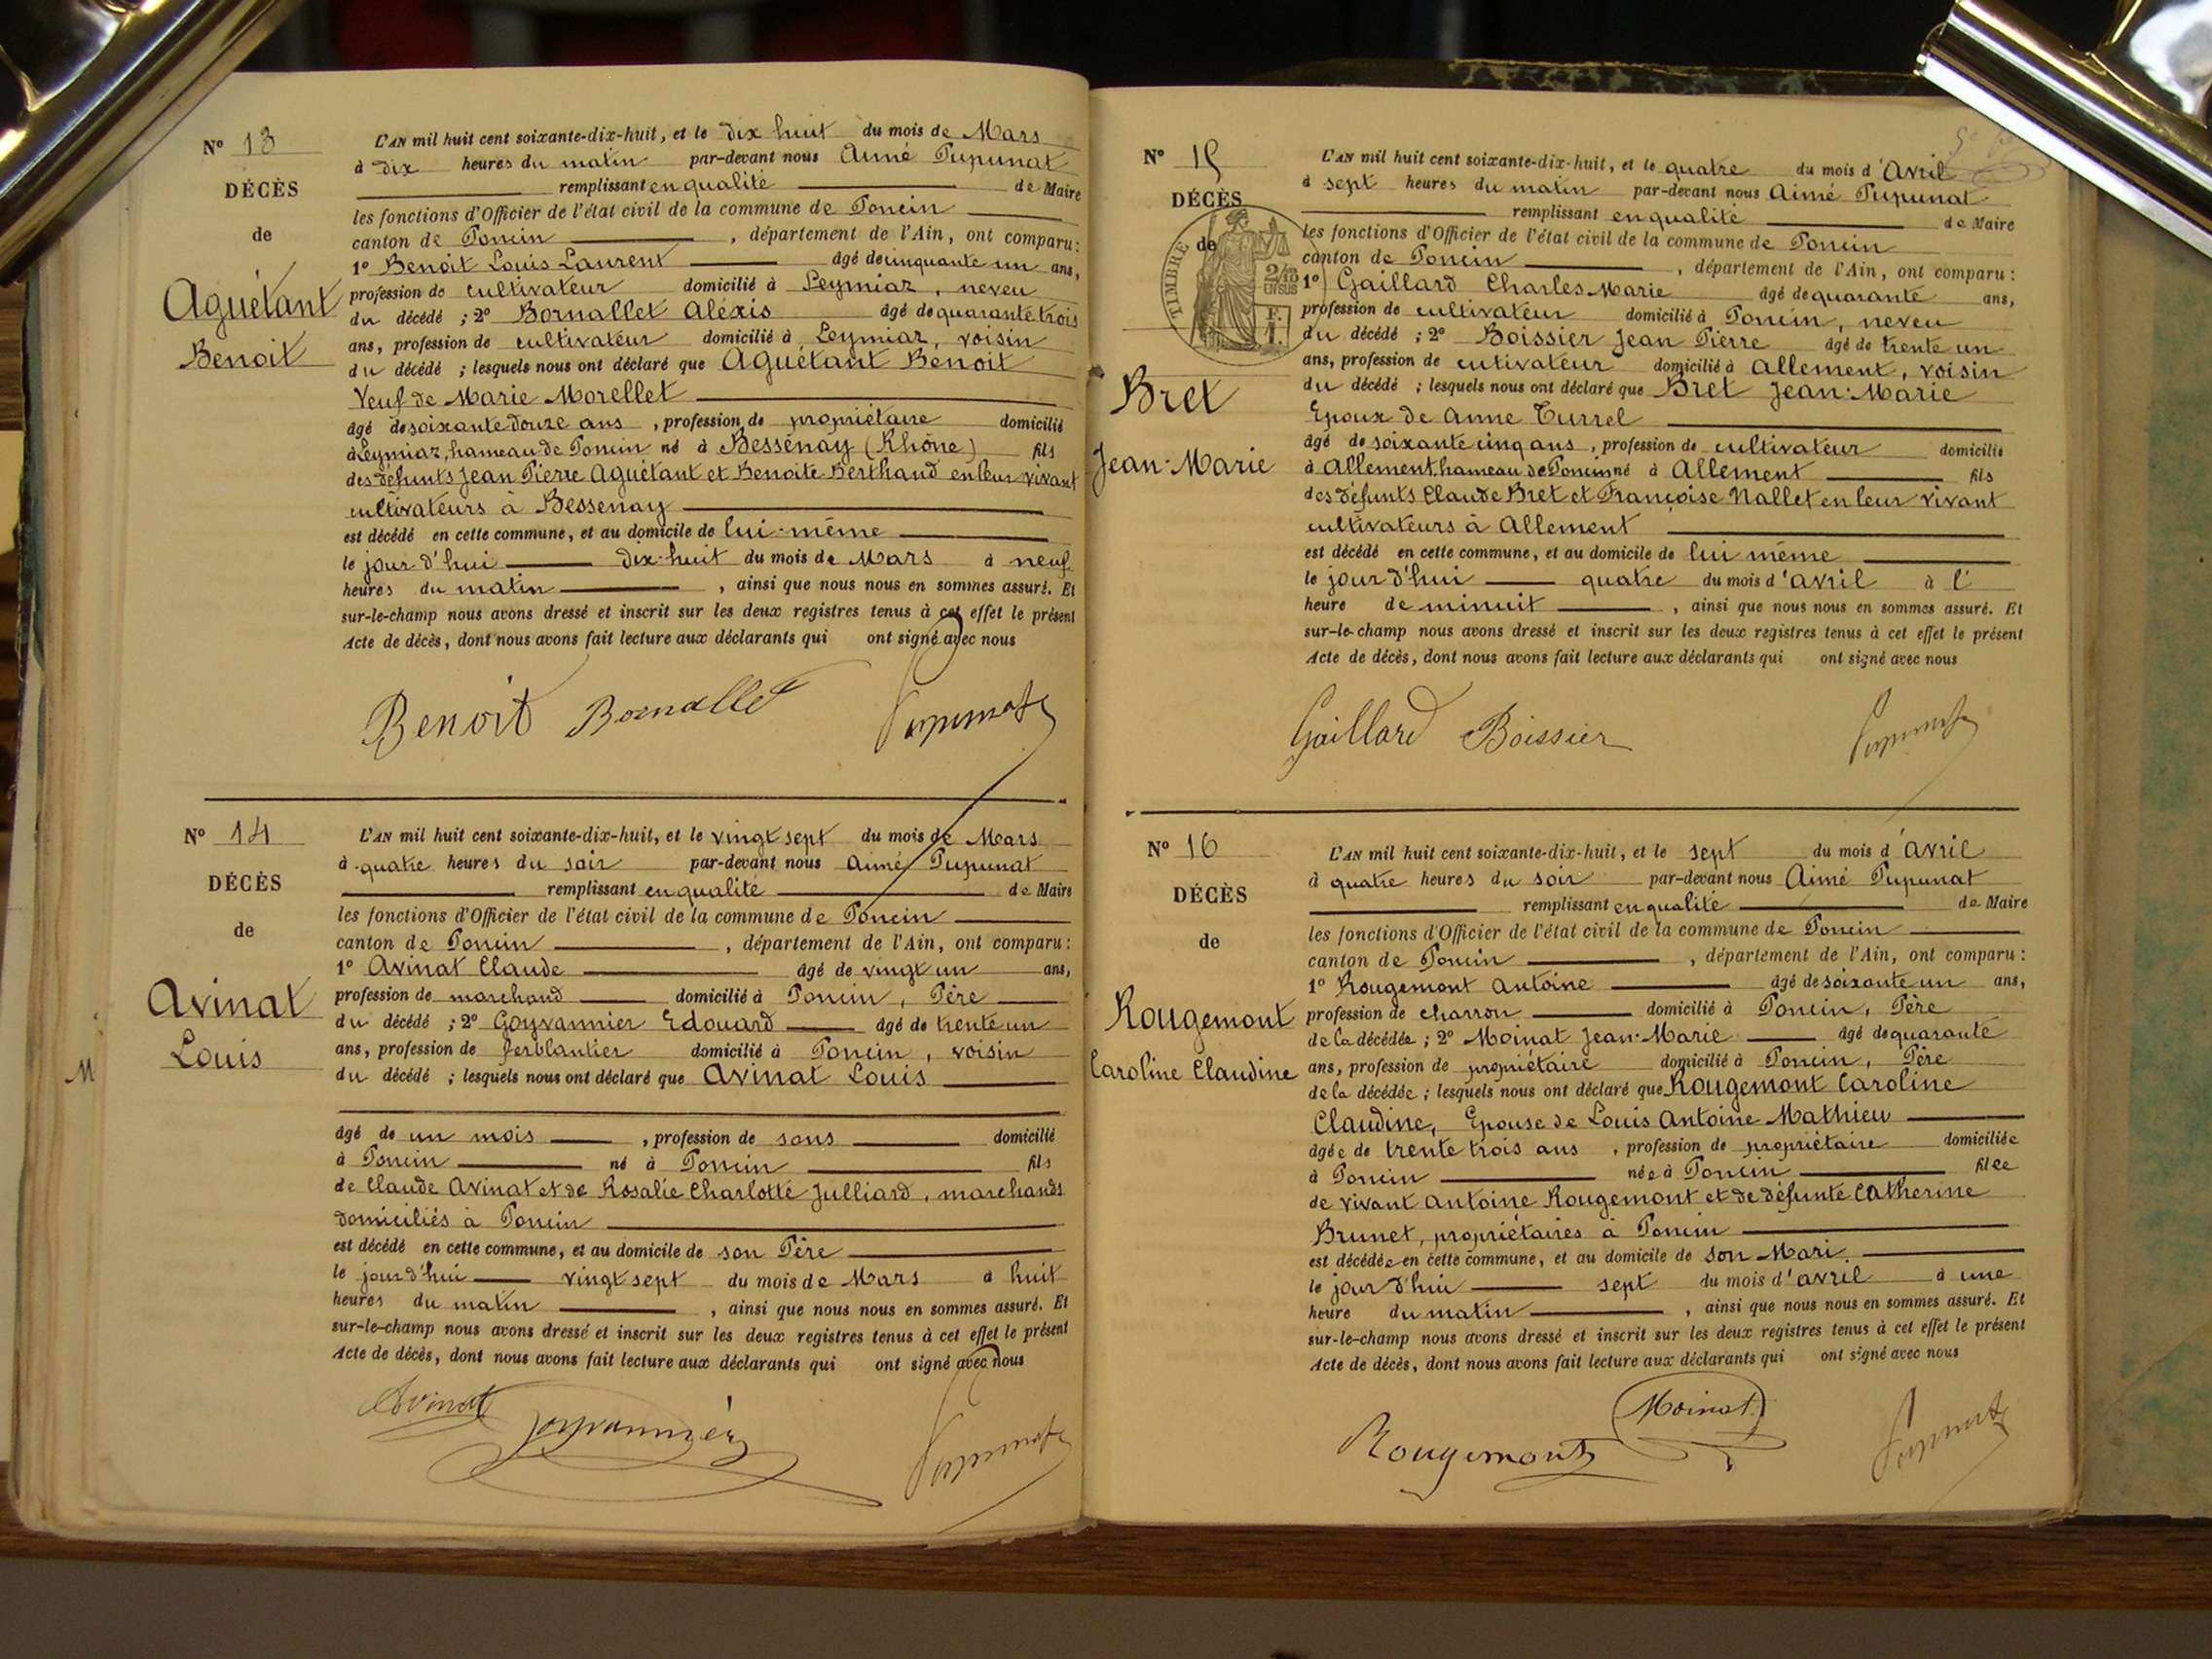 N° 13
DÉCÈS
de
Aguétant
Benoit
L'AN mil huit cent soixante-dix-huit, et le dix huit du mois de Mars
à dix heures du matin par-devant nous Aimé Pupunat
remplissant en qualité de Maire
les fonctions d'Officier de l'état civil de la commune de Poncin
canton de Poncin, département de l'Ain, ont comparu :
1° Benoit Louis Laurent âgé de cinquante un ans,
profession de cultivateur domicilié à Leymiaz, neveu
du décédé ; 2° Bornallet Aléxis âgé de quarante trois
ans, profession de cultivateur domicilié à Leymiaz, voisin
du décédé ; lesquels nous ont déclaré que Aguétant Benoit
Veuf de Marie Morellet
âgé de soixante douze ans, profession de propriétaire domicilié
à Leymiaz, hameau de Poncin né à Bessénay (Rhône) fils
des défunts Jean Pierre Aguétant et Benoite Berthaud en leur vivant
cultivateurs à Bessenay
est décédé en cette commune, et au domicile de lui-même
le jour d'hui dix-huit du mois de Mars à neuf
heures du matin, ainsi que nous nous en sommes assuré. Et
sur-le-champ nous avons dressé et inscrit sur les deux registres tenus à cet effet le présent
Acte de décès, dont nous avons fait lecture aux déclarants qui ont signé avec nous
Benoit Bornallet Pupunat
N° 14
DÉCÈS
de
Avinat
Louis
M
L'AN mil huit cent soixante-dix-huit, et le vingt sept du mois de Mars
à quatre heures du soir par-devant nous Aimé Pupunat
remplissant en qualité de Maire
les fonctions d'Officier de l'état civil de la commune de Poncin
canton de Poncin, département de l'Ain, ont comparu :
1° Avinat Claude âgé de vingt un ans,
profession de marchand domicilié à Poncin, Père
du décédé ; 2° Goyvannier Edouard âgé de trente un
ans, profession de ferblantier domicilié à Poncin, voisin
du décédé ; lesquels nous ont déclaré que Avinat Louis
âgé de un mois, profession de sans domicilié
à Poncin né à Poncin fils
de Claude Avinat et de Rosalie Charlotte Julliard, marchands
domiciliés à Poncin
est décédé en cette commune, et au domicile de son Père
le jour d'hui vingt sept du mois de Mars à huit
heures du matin, ainsi que nous nous en sommes assuré. Et
sur-le-champ nous avons dressé et inscrit sur les deux registres tenus à cet effet le présent
Acte de décès, dont nous avons fait lecture aux déclarants qui ont signé avec nous
Avinat Goyvannier Pupunat
N° 15
DÉCÈS
de
TIMBRE
2/10 EN SUS
Bret
Jean-Marie
L'AN mil huit cent soixante-dix-huit, et le quatre du mois d'Avril
à sept heures du matin par-devant nous Aimé Pupunat
remplissant en qualité de Maire
les fonctions d'Officier de l'état civil de la commune de Poncin
canton de Poncin, département de l'Ain, ont comparu :
1° Gaillard Charles Marie âgé de quarante ans,
profession de cultivateur domicilié à Poncin, neveu
du décédé ; 2° Boissier Jean Pierre âgé de trente un
ans, profession de cutivateur domicilié à Allement, voisin
du décédé ; lesquels nous ont déclaré que Bret Jean-Marie
Epoux de Anne Turrel
âgé de soixante cinq ans, profession de cultivateur domicilié
à Allement, hameau de Poncin né à Allement fils
des défunts Claude Bret et Françoise Nallet en leur vivant
cultivateurs à Allement
est décédé en cette commune, et au domicile de lui même
le jour d'hui quatre du mois d'avril à l'
heure de minuit, ainsi que nous nous en sommes assuré. Et
sur-le-champ nous avons dressé et inscrit sur les deux registres tenus à cet effet le présent
Acte de décès, dont nous avons fait lecture aux déclarants qui ont signé avec nous
Gaillard Boissier Pupunat
N° 16
DÉCÈS
de
Rougemont
Caroline Claudine
L'AN mil huit cent soixante-dix-huit, et le sept du mois d'avril
à quatre heures du soir par-devant nous Aimé Pupunat
remplissant en qualité de Maire
les fonctions d'Officier de l'état civil de la commune de Poncin
canton de Poncin, département de l'Ain, ont comparu :
1° Rougemont Antoine âgé de soixante un ans,
profession de charron domicilié à Poncin, Père
de la décédée ; 2° Moinat Jean-Marie âgé de quarante
ans, profession de propriétaire domicilié à Poncin, Père
de la décédée ; lesquels nous ont déclaré que Rougemont Caroline
Claudine, Epouse de Louis Antoine Mathieu
âgée de trente trois ans, profession de propriétaire domiciliée
à Poncin née à Poncin fille
de vivant Antoine Rougemont et de défunte Catherine
Brunet, propriétaires à Poncin
est décédée en cette commune, et au domicile de son Mari
le jour d'hui sept du mois d'avril à une
heure du matin, ainsi que nous nous en sommes assuré. Et
sur-le-champ nous avons dressé et inscrit sur les deux registres tenus à cet effet le présent
Acte de décès, dont nous avons fait lecture aux déclarants qui ont signé avec nous
Rougemont Moinat Pupunat